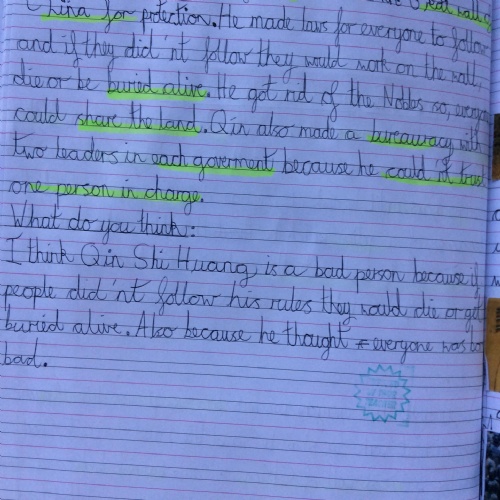 China for protection. He made laws for everyone to follow
and if they did'nt follow they would work on the wall,
die or be buried alive. He got rid of the Nobles so, everyone
could share the land. Qin also made a bureaucracy with
two leaders in each goverment because he could'nt trust
one person in charge.
What do you think:
I think Qin Shi Huang is a bad person because if
people did'nt follow his rules they would die or get
buried alive. Also because he thought everyone was
bad.